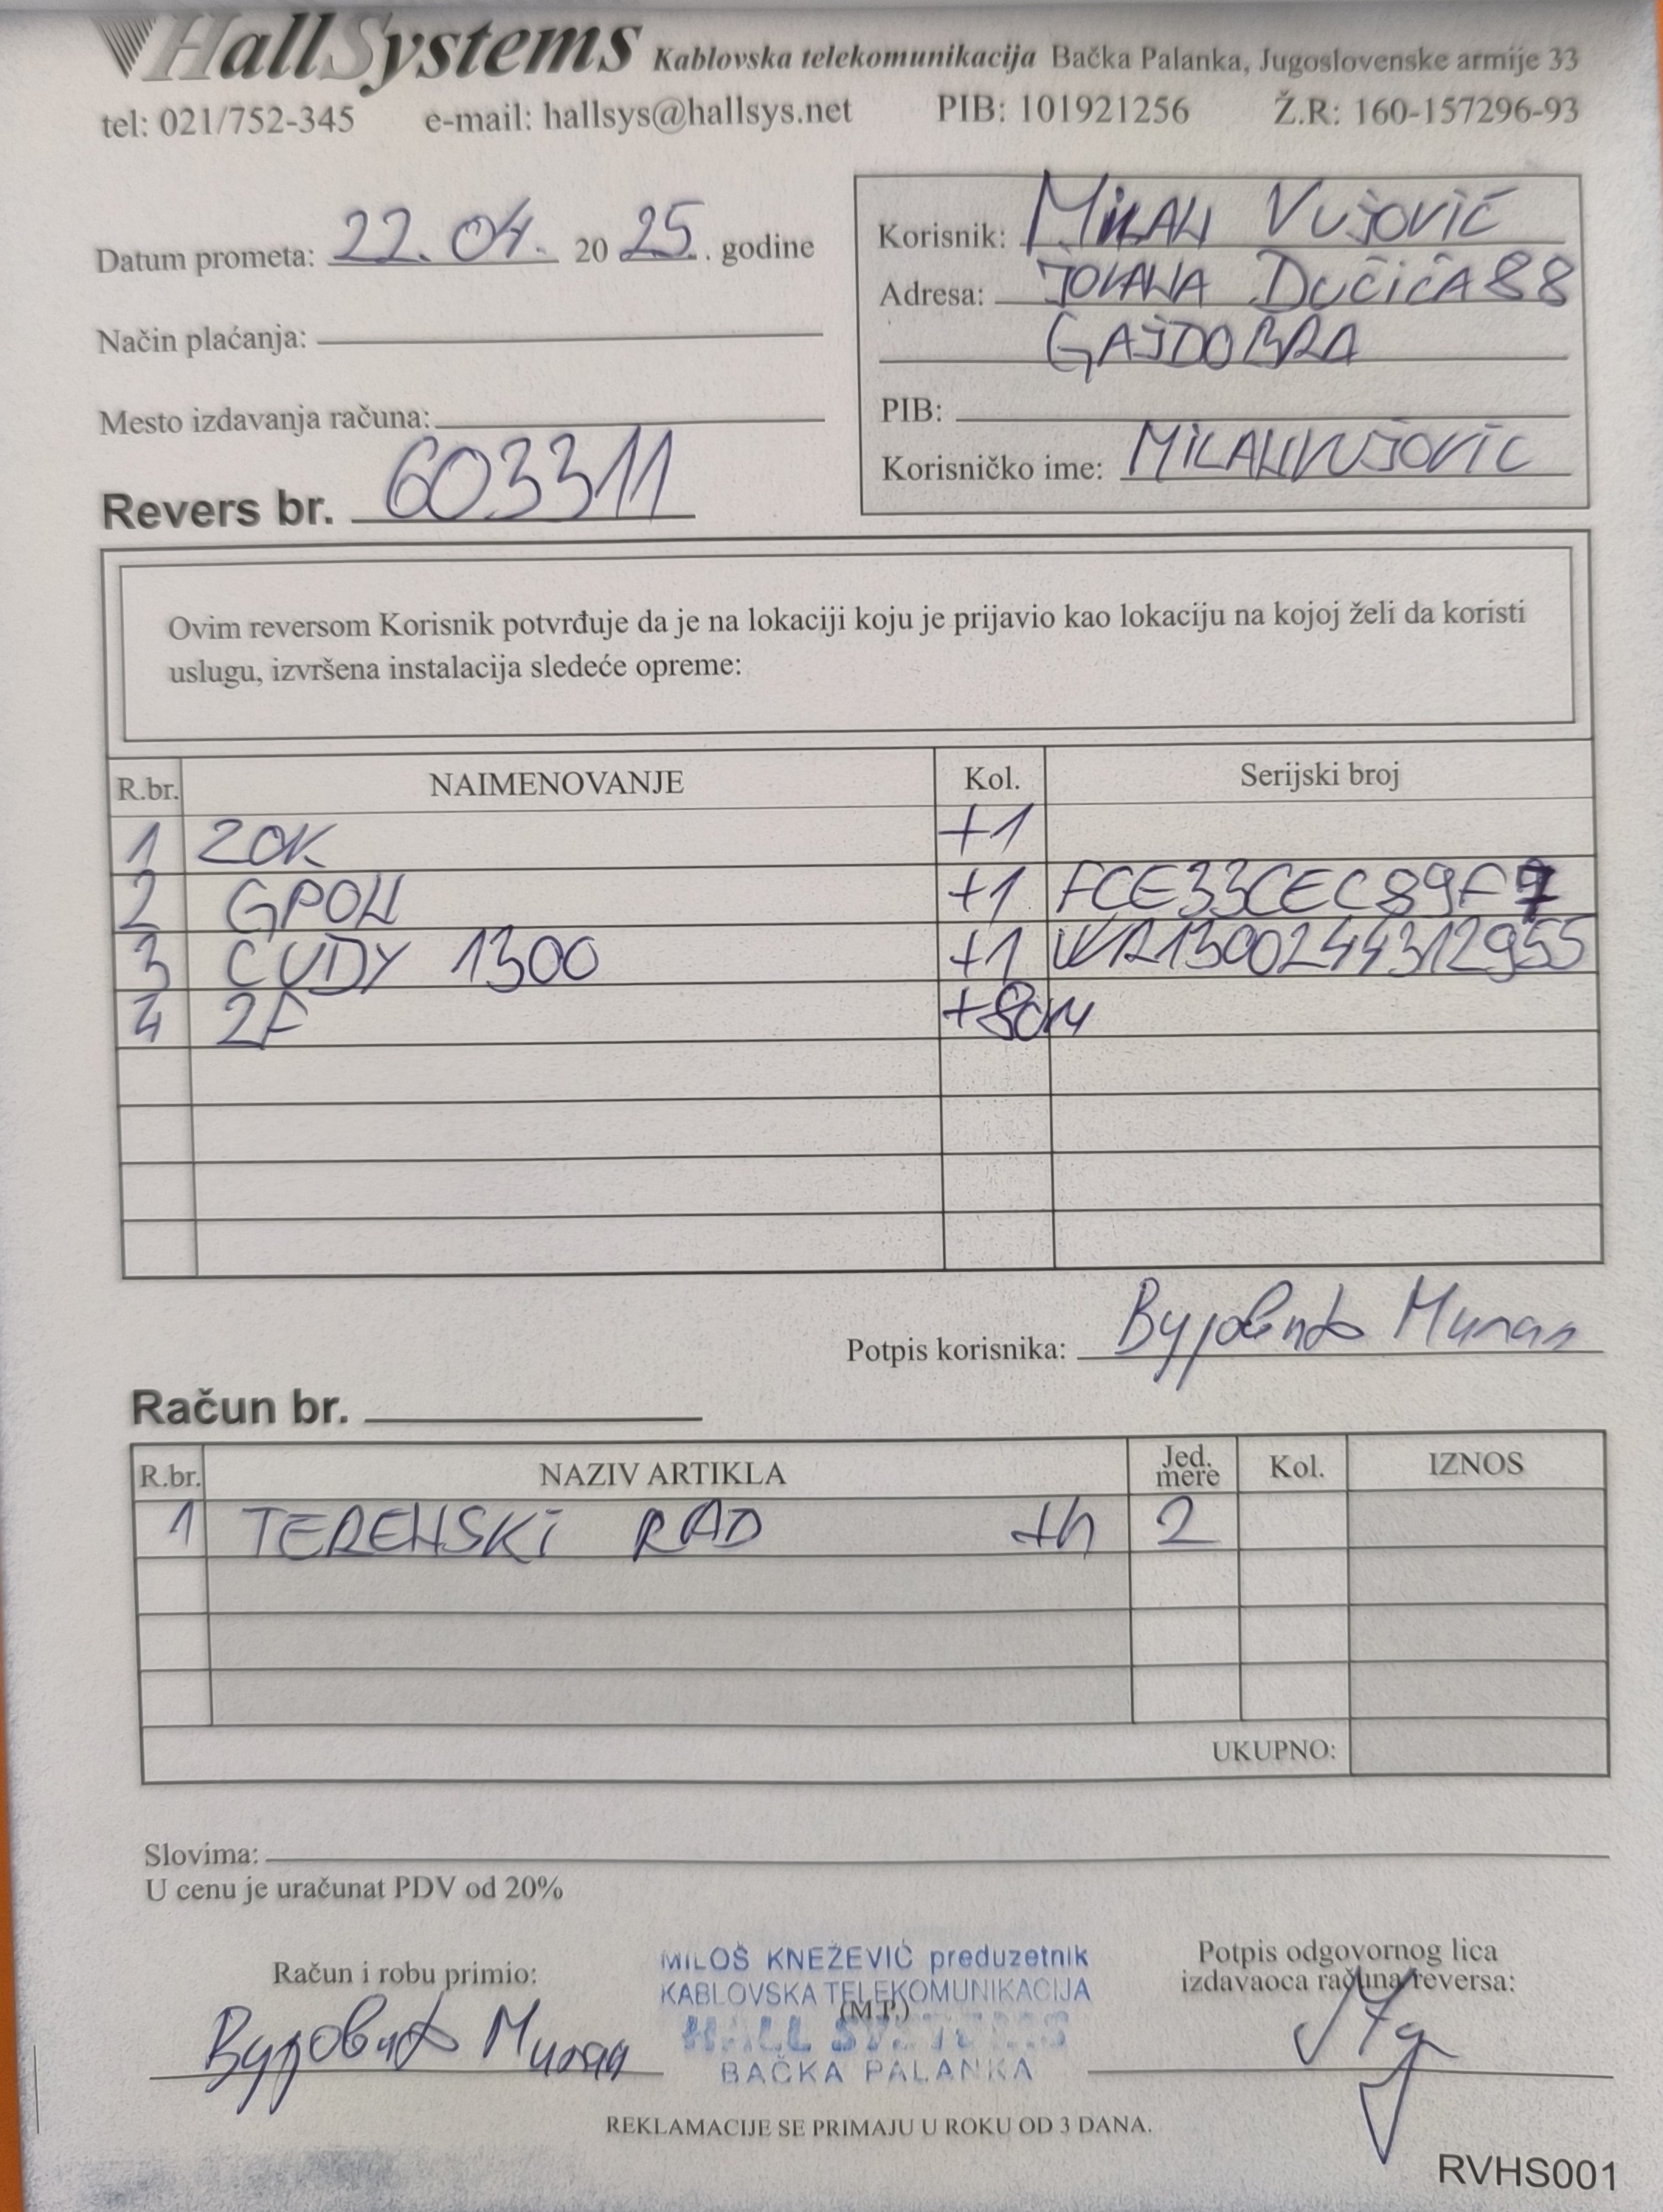 HallSystems Kablovska telekomunikacija Bačka Palanka, Jugoslovenske armije 33
tel: 021/752-345 e-mail: hallsys@hallsys.net PIB: 101921256 Ž.R: 160-157296-93
Datum prometa: 22.04. 20 25. godine
Način plaćanja:
Mesto izdavanja računa:
Revers br. 603311
Korisnik: MILAN VUJOVIĆ
Adresa: JOVANA DUČIĆA 88
GAJDOBRA
PIB:
Korisničko ime: MILANVUJOVIC
Ovim reversom Korisnik potvrđuje da je na lokaciji koju je prijavio kao lokaciju na kojoj želi da koristi
uslugu, izvršena instalacija sledeće opreme:
R.br. NAIMENOVANJE Kol. Serijski broj
1 ZOK +1
2 GPON +1 FCE33CEC89F7
3 CUDY 1300 +1 WR1300244312955
4 2F +80M
Potpis korisnika: Вујовић Милан
Račun br.
R.br. NAZIV ARTIKLA Jed. mere Kol. IZNOS
1 TERENSKI RAD +h 2
UKUPNO:
Slovima:
U cenu je uračunat PDV od 20%
Račun i robu primio:
Вујовић Милан
MILOŠ KNEŽEVIĆ preduzetnik
KABLOVSKA TELEKOMUNIKACIJA
(M.P.)
HALL SYSTEMS
BAČKA PALANKA
Potpis odgovornog lica
izdavaoca računa/reversa:
REKLAMACIJE SE PRIMAJU U ROKU OD 3 DANA.
RVHS001